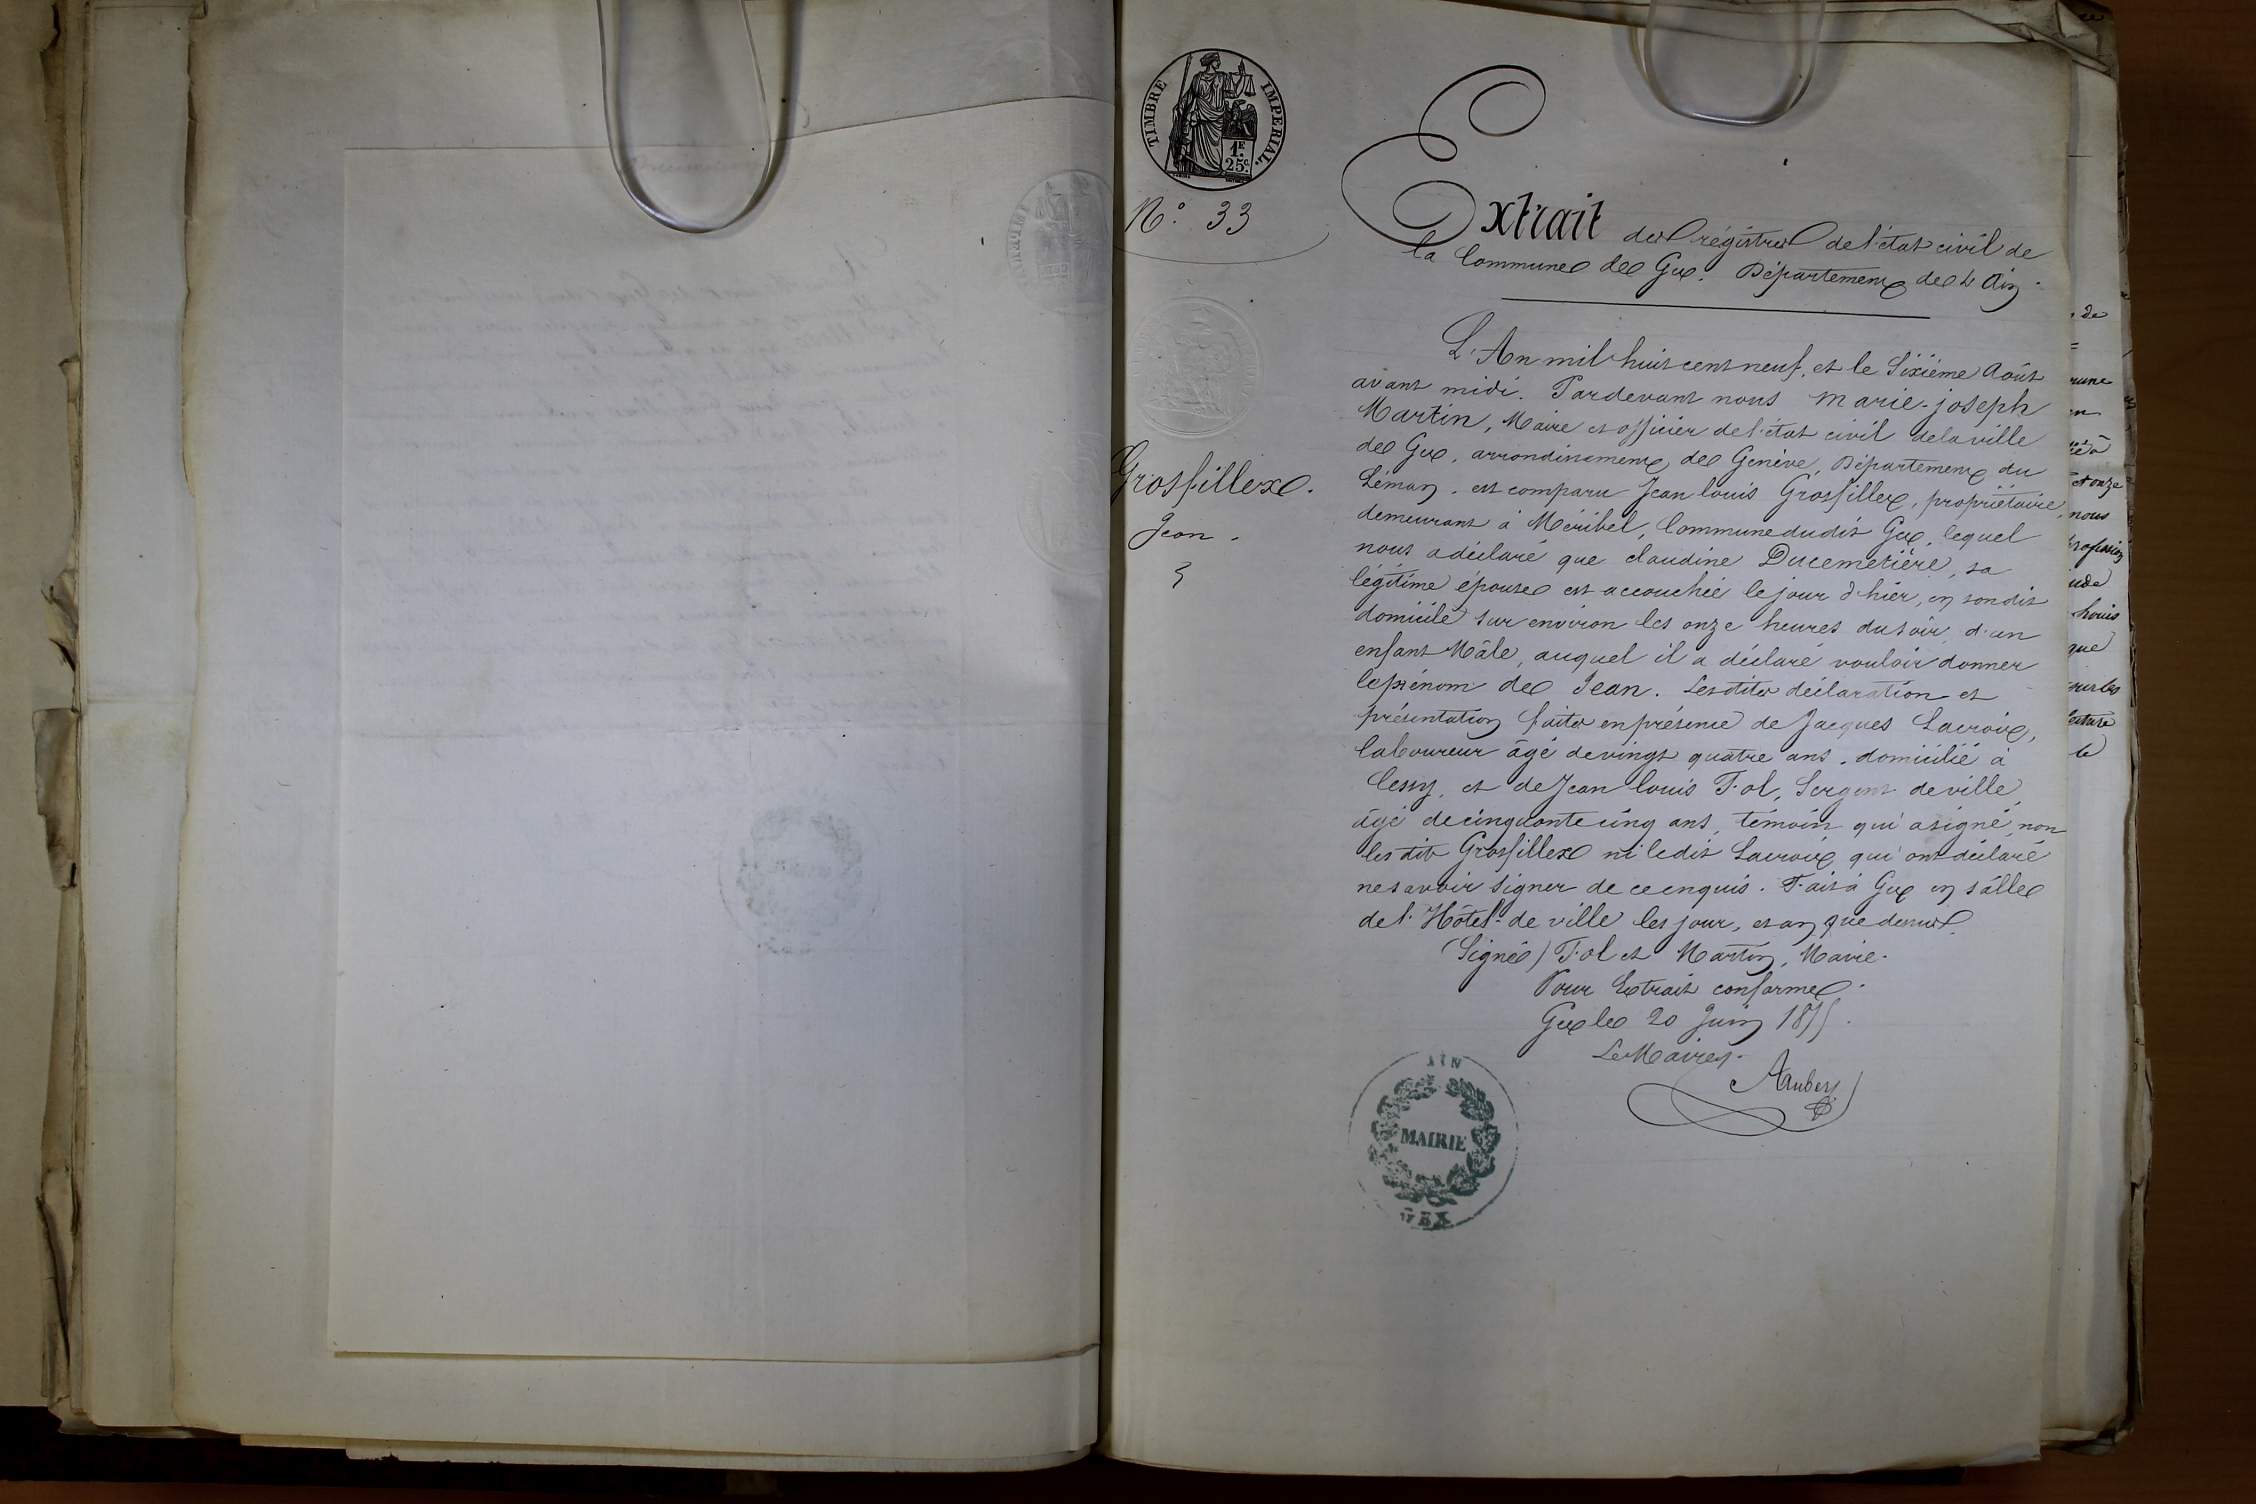 TIMBRE IMPERIAL
1F.
25c.
N.° 33
Extrait des régistres de l'état civil de
la Commune de Gex. Département de L'Ain.
Grosfillex.
Jean.
L'An mil huit cent neuf, et le Sixième Août
avant midi. Pardevant nous Marie-joseph
Martin, Maire et officier de l'état civil de la ville
de Gex, arrondissement de Genève, Département du
Léman, est comparu Jean louis Grosfillex, propriétaire,
demeurant à Méribel, Commune dudit Gex, lequel
nous a déclaré que claudine Ducemetière, sa
légitime épouse est accouchée le jour d'hier, en son dit
domicile sur environ les onze heures du soir, d'un
enfant Mâle, auquel il a déclaré vouloir donner
le prénom de Jean. Lesdites déclaration et
présentation faites en présence de Jacques Lacroix,
laboureur âgé de vingt quatre ans, domicilié à
Cessy, et de Jean louis Fol, Sergent de ville,
âgé de cinquante cinq ans, témoin qui a signé, non
les dit Grosfillex ni ledit Lacroix qui ont déclaré
ne savoir signer de ce enquis. Fait à Gex en sâlle
de l'Hôtel-de ville les jour, et an que dessus.
(Signé) Fol et Martin, Maire.
Pour Extrait conforme.
Gex le 20 Juin 1855.
Le Maire.
AIN
MAIRIE
GEX
de
mune
et onze
nous
profession
Louis
que
sur les
lecture
le